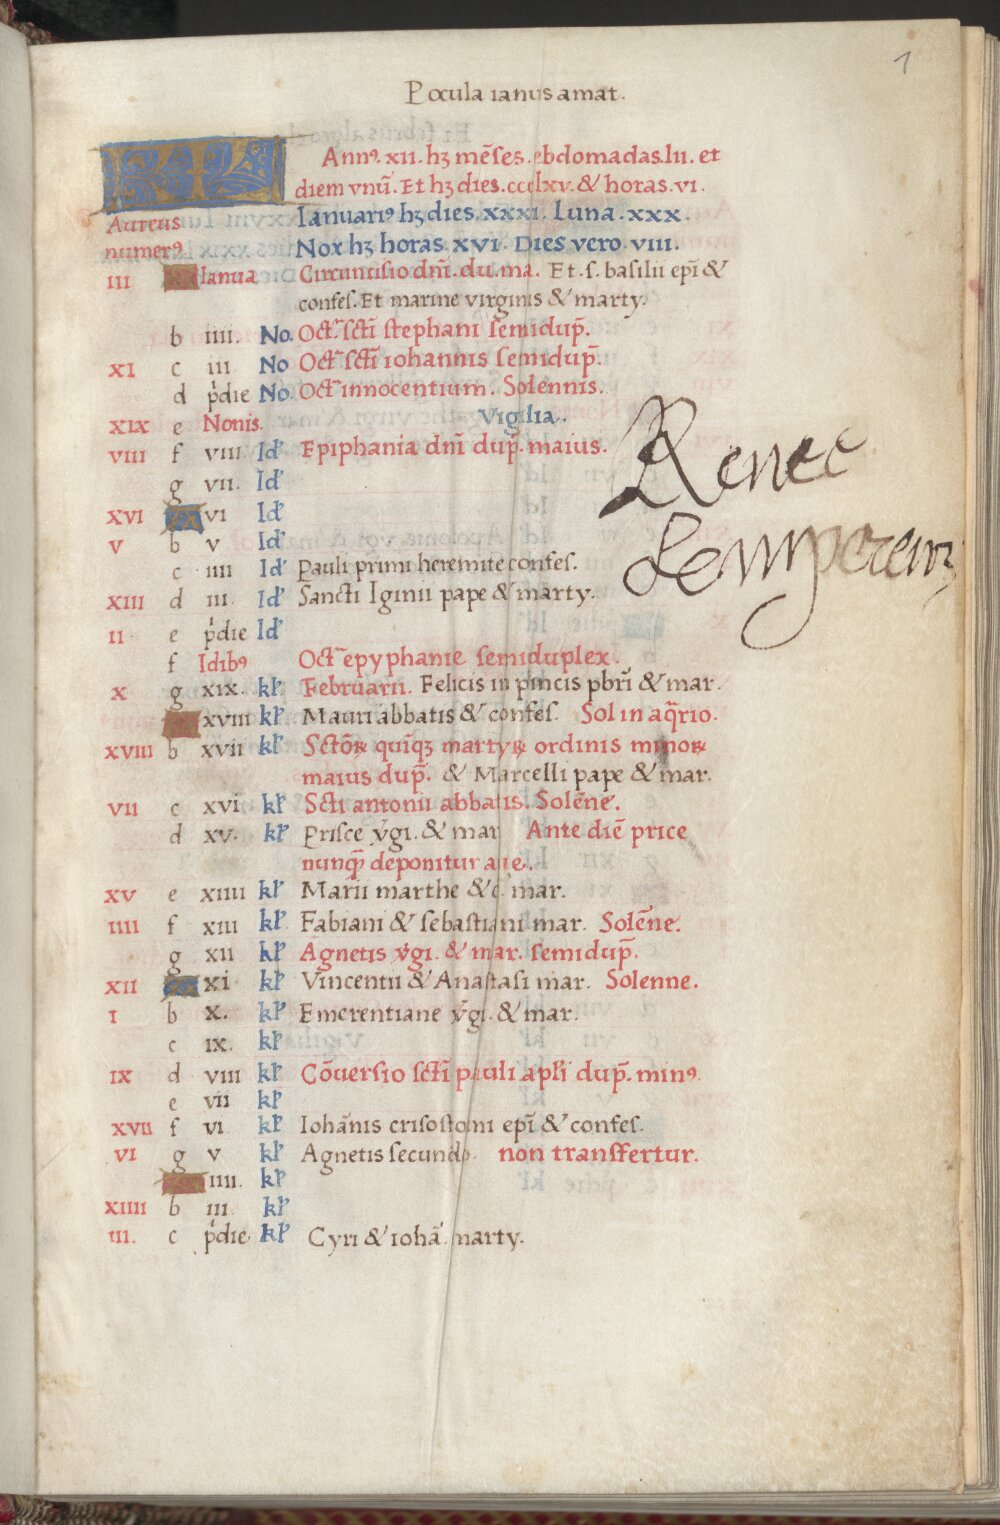 1
Pocula ianus amat.
KL Annꝰ. xii. hꝫ mēses. ebdomadas. lii. et
diem vnū. Et hꝫ dies. ccclxv. & horas. vi.
Aureus Ianuariꝰ hꝫ dies. xxxi. Luna. xxx.
numerꝰ. Nox hꝫ horas. xvi. Dies vero. viii.
III A Ianua Circuncisio dn̄i. du. ma. Et. s. basilii ep̄i &
confes. Et marine virginis & marty.
b iiii. No. Oct̄. sct̄i stephani semidup̄.
XI c iii No Oct̄ sct̄i iohannis semidup̄.
d p̍die No. Oct̄ innocentium. Solennis.
XIX e Nonis. Vigilia.
VIII f viii Id᷎ Epiphania dn̄i dup̄. maius.
g vii. Id᷎
XVI A vi Id᷎
V b v Id᷎
c iiii Id᷎ Pauli primi heremite confes.
XIII d iii Id᷎ Sancti Iginii pape & marty.
II e p̍die Id᷎
f Idibꝰ Oct̄ epyphanie semiduplex.
X g xix. kl᷎ Februarii. Felicis in pincis pbr̄i & mar.
A xviii kl᷎ Mauri abbatis & confes. Sol in aq̄rio.
XVIII b xvii kl᷎ Sctōꝝ quīqꝫ martyꝝ ordinis minoꝝ
maius dup̄. & Marcelli pape & mar.
VII c xvi kl᷎ Scti antonii abbatis. Solēne.
d xv. kl᷎ Prisce v̍gi. & mar Ante diē price
nunq̄ deponitur aĺle.
XV e xiiii kl᷎ Marii marthe & c̄ mar.
IIII f xiii kl᷎ Fabiani & sebastiani mar. Solēne.
g xii kl᷎ Agnetis v̍gi. & mar. semidup̄.
XII A xi kl᷎ Vincentii & Anastasi mar. Solenne.
I b x. kl᷎ Emerentiane v̍gi. & mar.
c ix. kl᷎
IX d viii kl᷎ Cōuersio sct̄i pauli apl̄i dup̄. minꝰ
e vii kl᷎
XVII f vi kl᷎ Iohānis crisostomi ep̄i & confes.
VI g v kl᷎ Agnetis secundo. non transfertur.
A iiii. kl᷎
XIIII b iii kl᷎
III. c p̍die kl᷎ Cyri & iohā. marty.
Renee
Lempereur